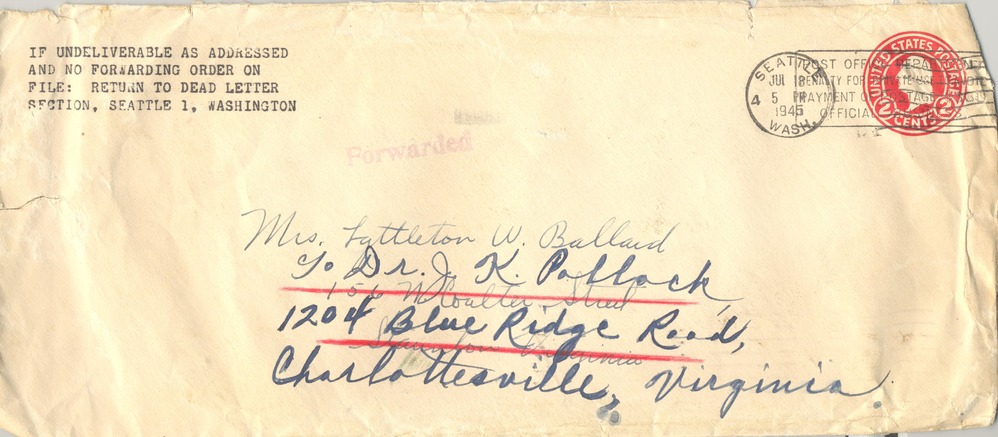 IF UNDELIVERABLE AS ADDRESSED
AND NO FORWARDING ORDER ON
FILE: RETURN TO DEAD LETTER
SECTION, SEATTLE 1, WASHINGTON
SEATTLE
JUL 18
4 5 PM
1945
WASH.
POST OFFICE DEPARTMENT
PENALTY FOR PRIVATE USE
PAYMENT OF POSTAGE
OFFICIAL
UNITED STATES POSTAGE
2 CENTS 2
Forwarded
Mrs. Lyttleton W. Ballard
Dr. J. K. Pollock,
156 N Coulter Street
1204 Blue Ridge Road,
Staunton Virginia
Charlottesville, Virginia.